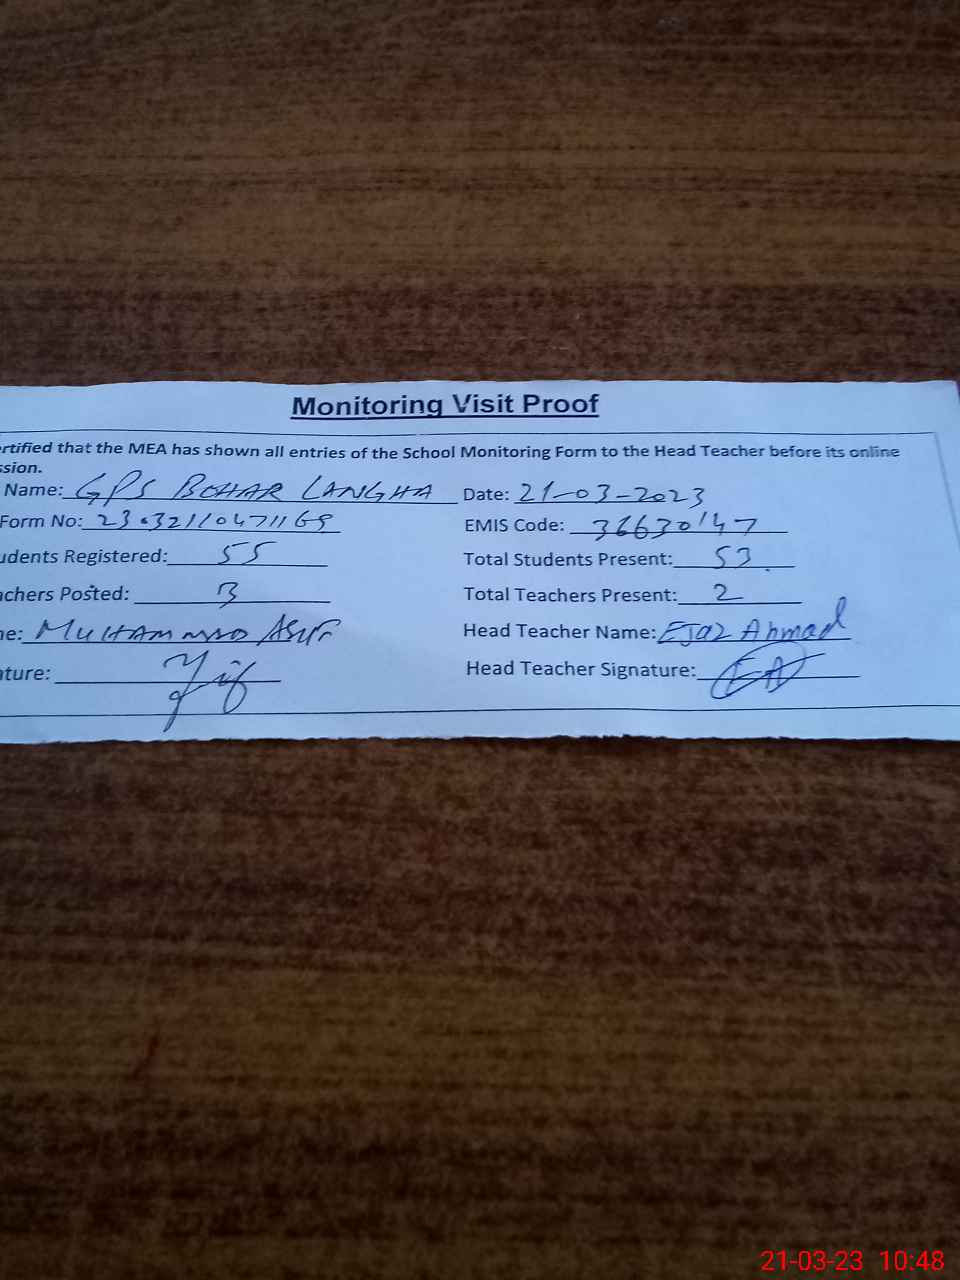 Monitoring Visit Proof
rtified that the MEA has shown all entries of the School Monitoring Form to the Head Teacher before its online
ssion.
Name: GPS BOHAR LANGHA Date: 21-03-2023
Form No: EMIS Code: 36630147
udents Registered: 55 Total Students Present: 53
achers Posted: 3 Total Teachers Present: 2
ne: MUHAMMAD ASIF Head Teacher Name: Ejaz Ahmad
ature: Head Teacher Signature: EA
21-03-23 10:48